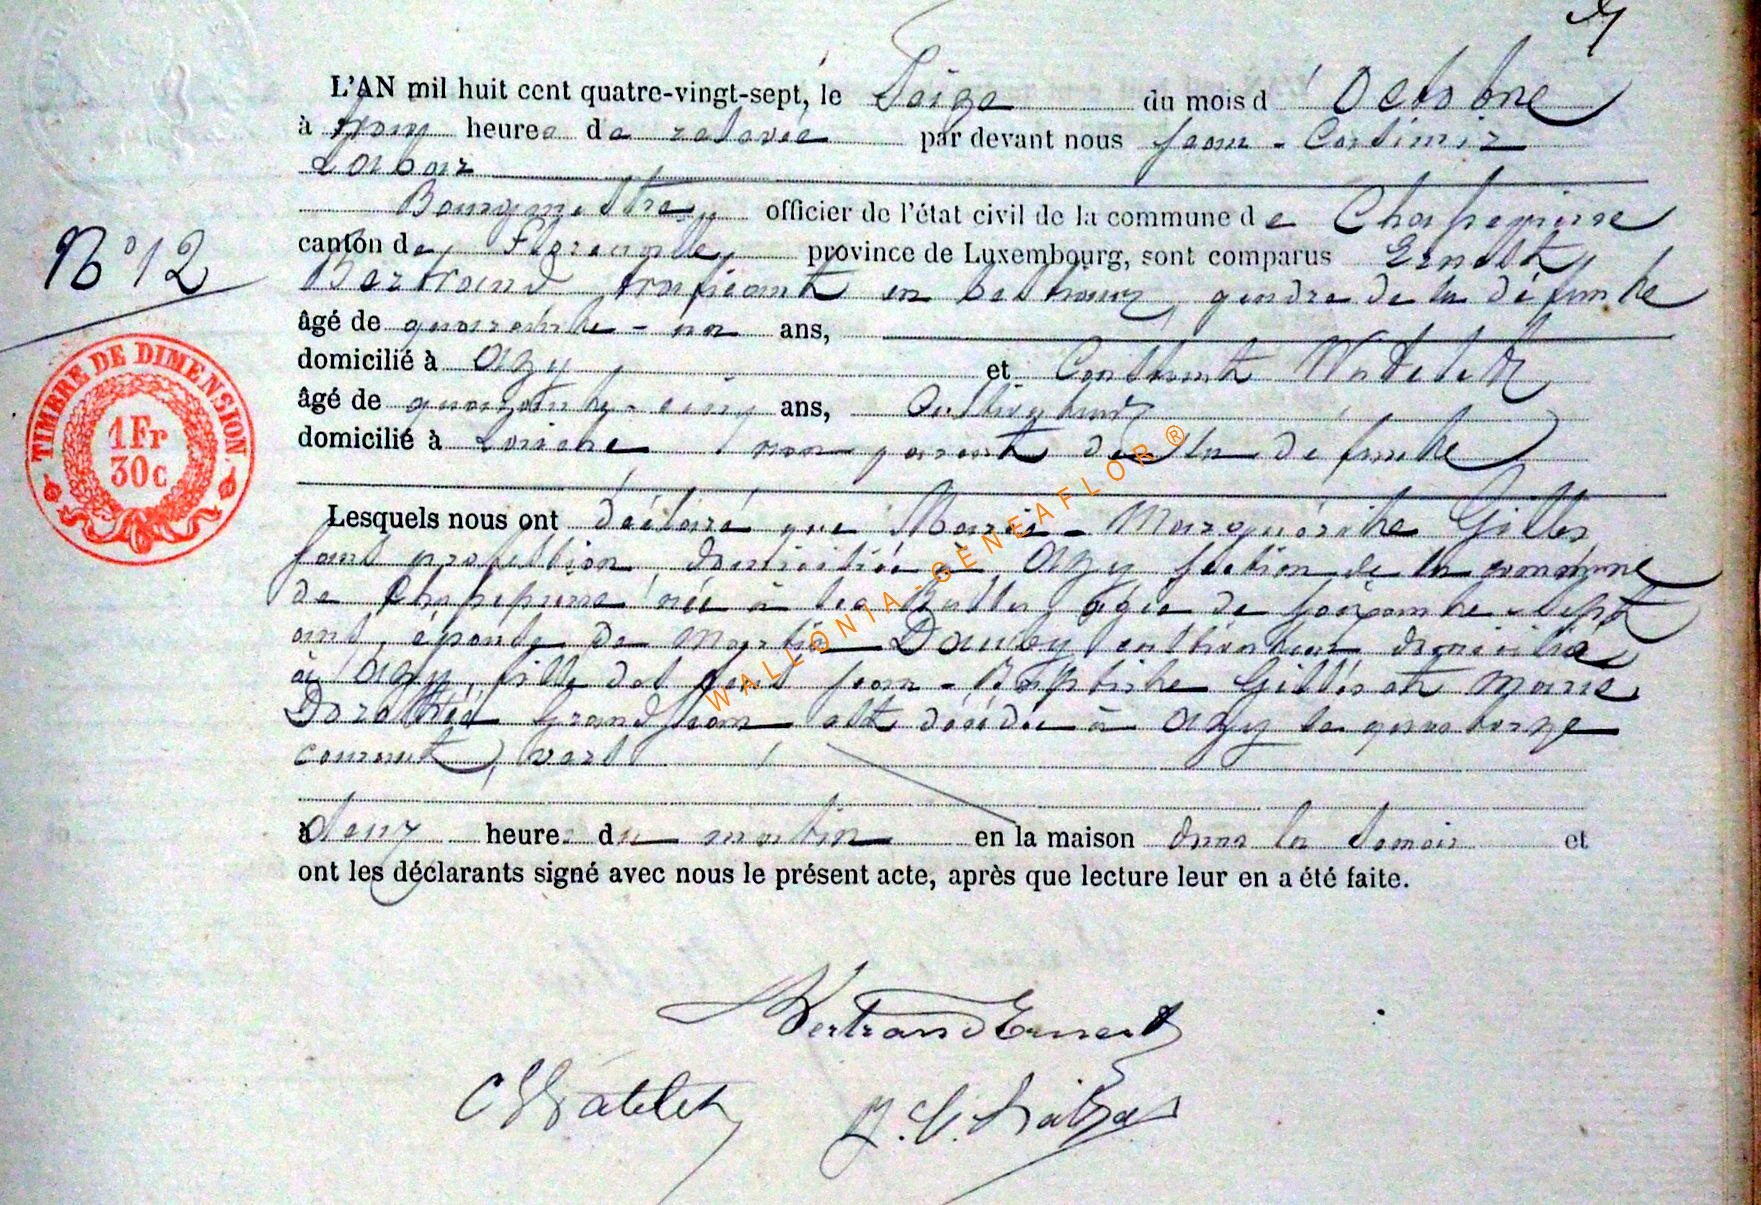 L'AN mil huit cent quatre-vingt-sept, le Seize du mois d'Octobre
à trois heures de relevée par devant nous Jean-Casimir
Labar
Bourgmestre, officier de l'état civil de la commune de Chassepierre
canton de Florenville, province de Luxembourg, sont comparus Ernest
Bertrand trafiquant en bestiaux, gendre de la défunte
âgé de quarante-un ans,
domicilié à Azy et Constant Watelet
âgé de quarante-cinq ans, Cultivateur
domicilié à Laiche non parent de la défunte
Lesquels nous ont déclaré que Marie-Marguérite Gilles
sans profession domiciliée à Azy section de la commune
de Chassepierre née à les Bulles, âgée de soixante-sept
ans, épouse de Martin Dauby cultivateur domicilié
à Azy, fille des feus Jean-Baptiste Gilles et Marie
Dorothée Grandjean est décédée à Azy le quatorze
courant, vers
à deux heures du matin en la maison dans la Semois et
ont les déclarants signé avec nous le présent acte, après que lecture leur en a été faite.
N° 12
TIMBRE DE DIMENSION
1 Fr
30c
WALLONIA-GÉNÉAFLOR ®
Bertrand Ernest
C Watelet
J. C. Labar